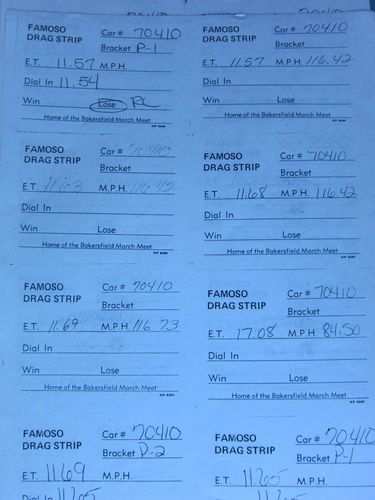 FAMOSO DRAG STRIP Car # 70410
Bracket P-1
E.T. 11.57 M.P.H.
Dial In 11.54
Win Lose RL
Home of the Bakersfield March Meet
FAMOSO DRAG STRIP Car # 70410
Bracket
E.T. 11.57 M.P.H. 116.42
Dial In
Win Lose
Home of the Bakersfield March Meet
FAMOSO DRAG STRIP Car # 70410
Bracket
E.T. 11.63 M.P.H. 116.42
Dial In
Win Lose
Home of the Bakersfield March Meet
FAMOSO DRAG STRIP Car # 70410
Bracket
E.T. 11.68 M.P.H. 116.42
Dial In
Win Lose
Home of the Bakersfield March Meet
FAMOSO DRAG STRIP Car # 70410
Bracket
E.T. 11.69 M.P.H. 116.73
Dial In
Win Lose
Home of the Bakersfield March Meet
FAMOSO DRAG STRIP Car # 70410
Bracket
E.T. 17.08 M.P.H. 84.50
Dial In
Win Lose
Home of the Bakersfield March Meet
FAMOSO DRAG STRIP Car # 70410
Bracket P-2
E.T. 11.69 M.P.H.
Dial In 11.65
FAMOSO DRAG STRIP Car # 70410
Bracket P-1
E.T. 11.65 M.P.H.
Dial In 11.65